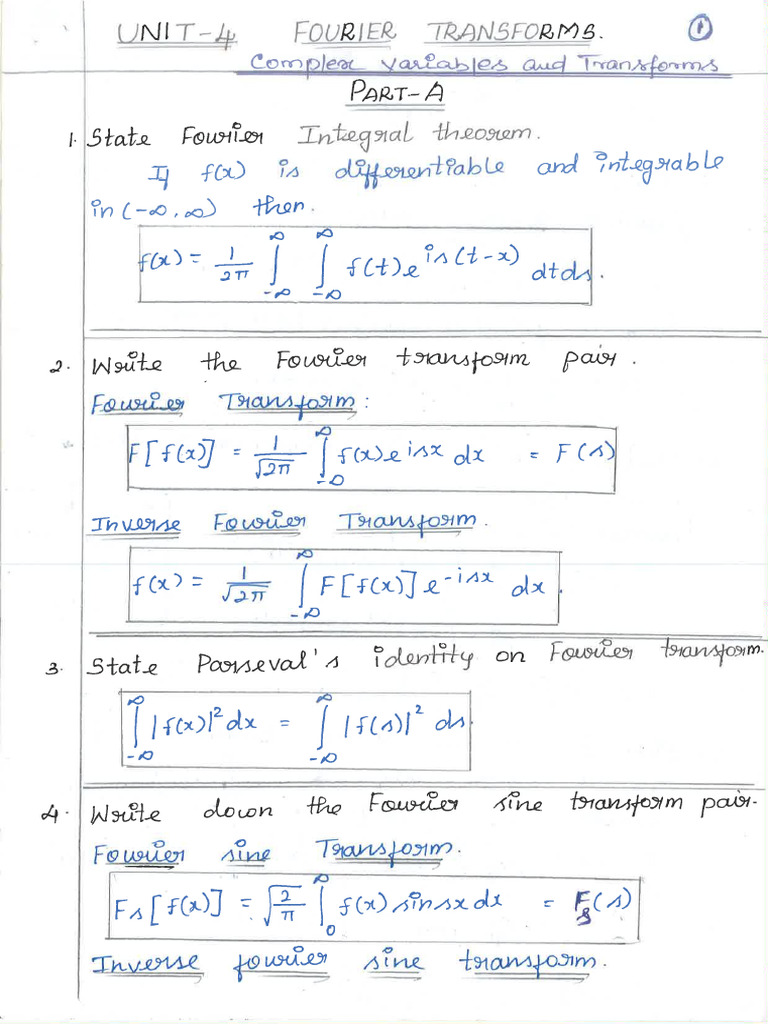 UNIT-4 FOURIER TRANSFORMS. ①
Complex Variables and Transforms
PART-A
1. State Fourier Integral theorem.
If f(x) is differentiable and integrable
in (-∞, ∞) then.
f(x) = 1/2π ∫_{-∞}^{∞} ∫_{-∞}^{∞} f(t) e^{is(t-x)} dt ds.
2. Write the Fourier transform pair.
Fourier Transform:
F[f(x)] = 1/√2π ∫_{-∞}^{∞} f(x) e^{isx} dx = F(s)
Inverse Fourier Transform.
f(x) = 1/√2π ∫_{-∞}^{∞} F[f(x)] e^{-isx} dx.
3. State Parseval's identity on Fourier transform.
∫_{-∞}^{∞} |f(x)|² dx = ∫_{-∞}^{∞} |f(s)|² ds.
4. Write down the Fourier sine transform pair.
Fourier sine Transform.
Fs[f(x)] = √(2/π) ∫_{0}^{∞} f(x) sinsx dx = F_s(s)
Inverse fourier sine transform.